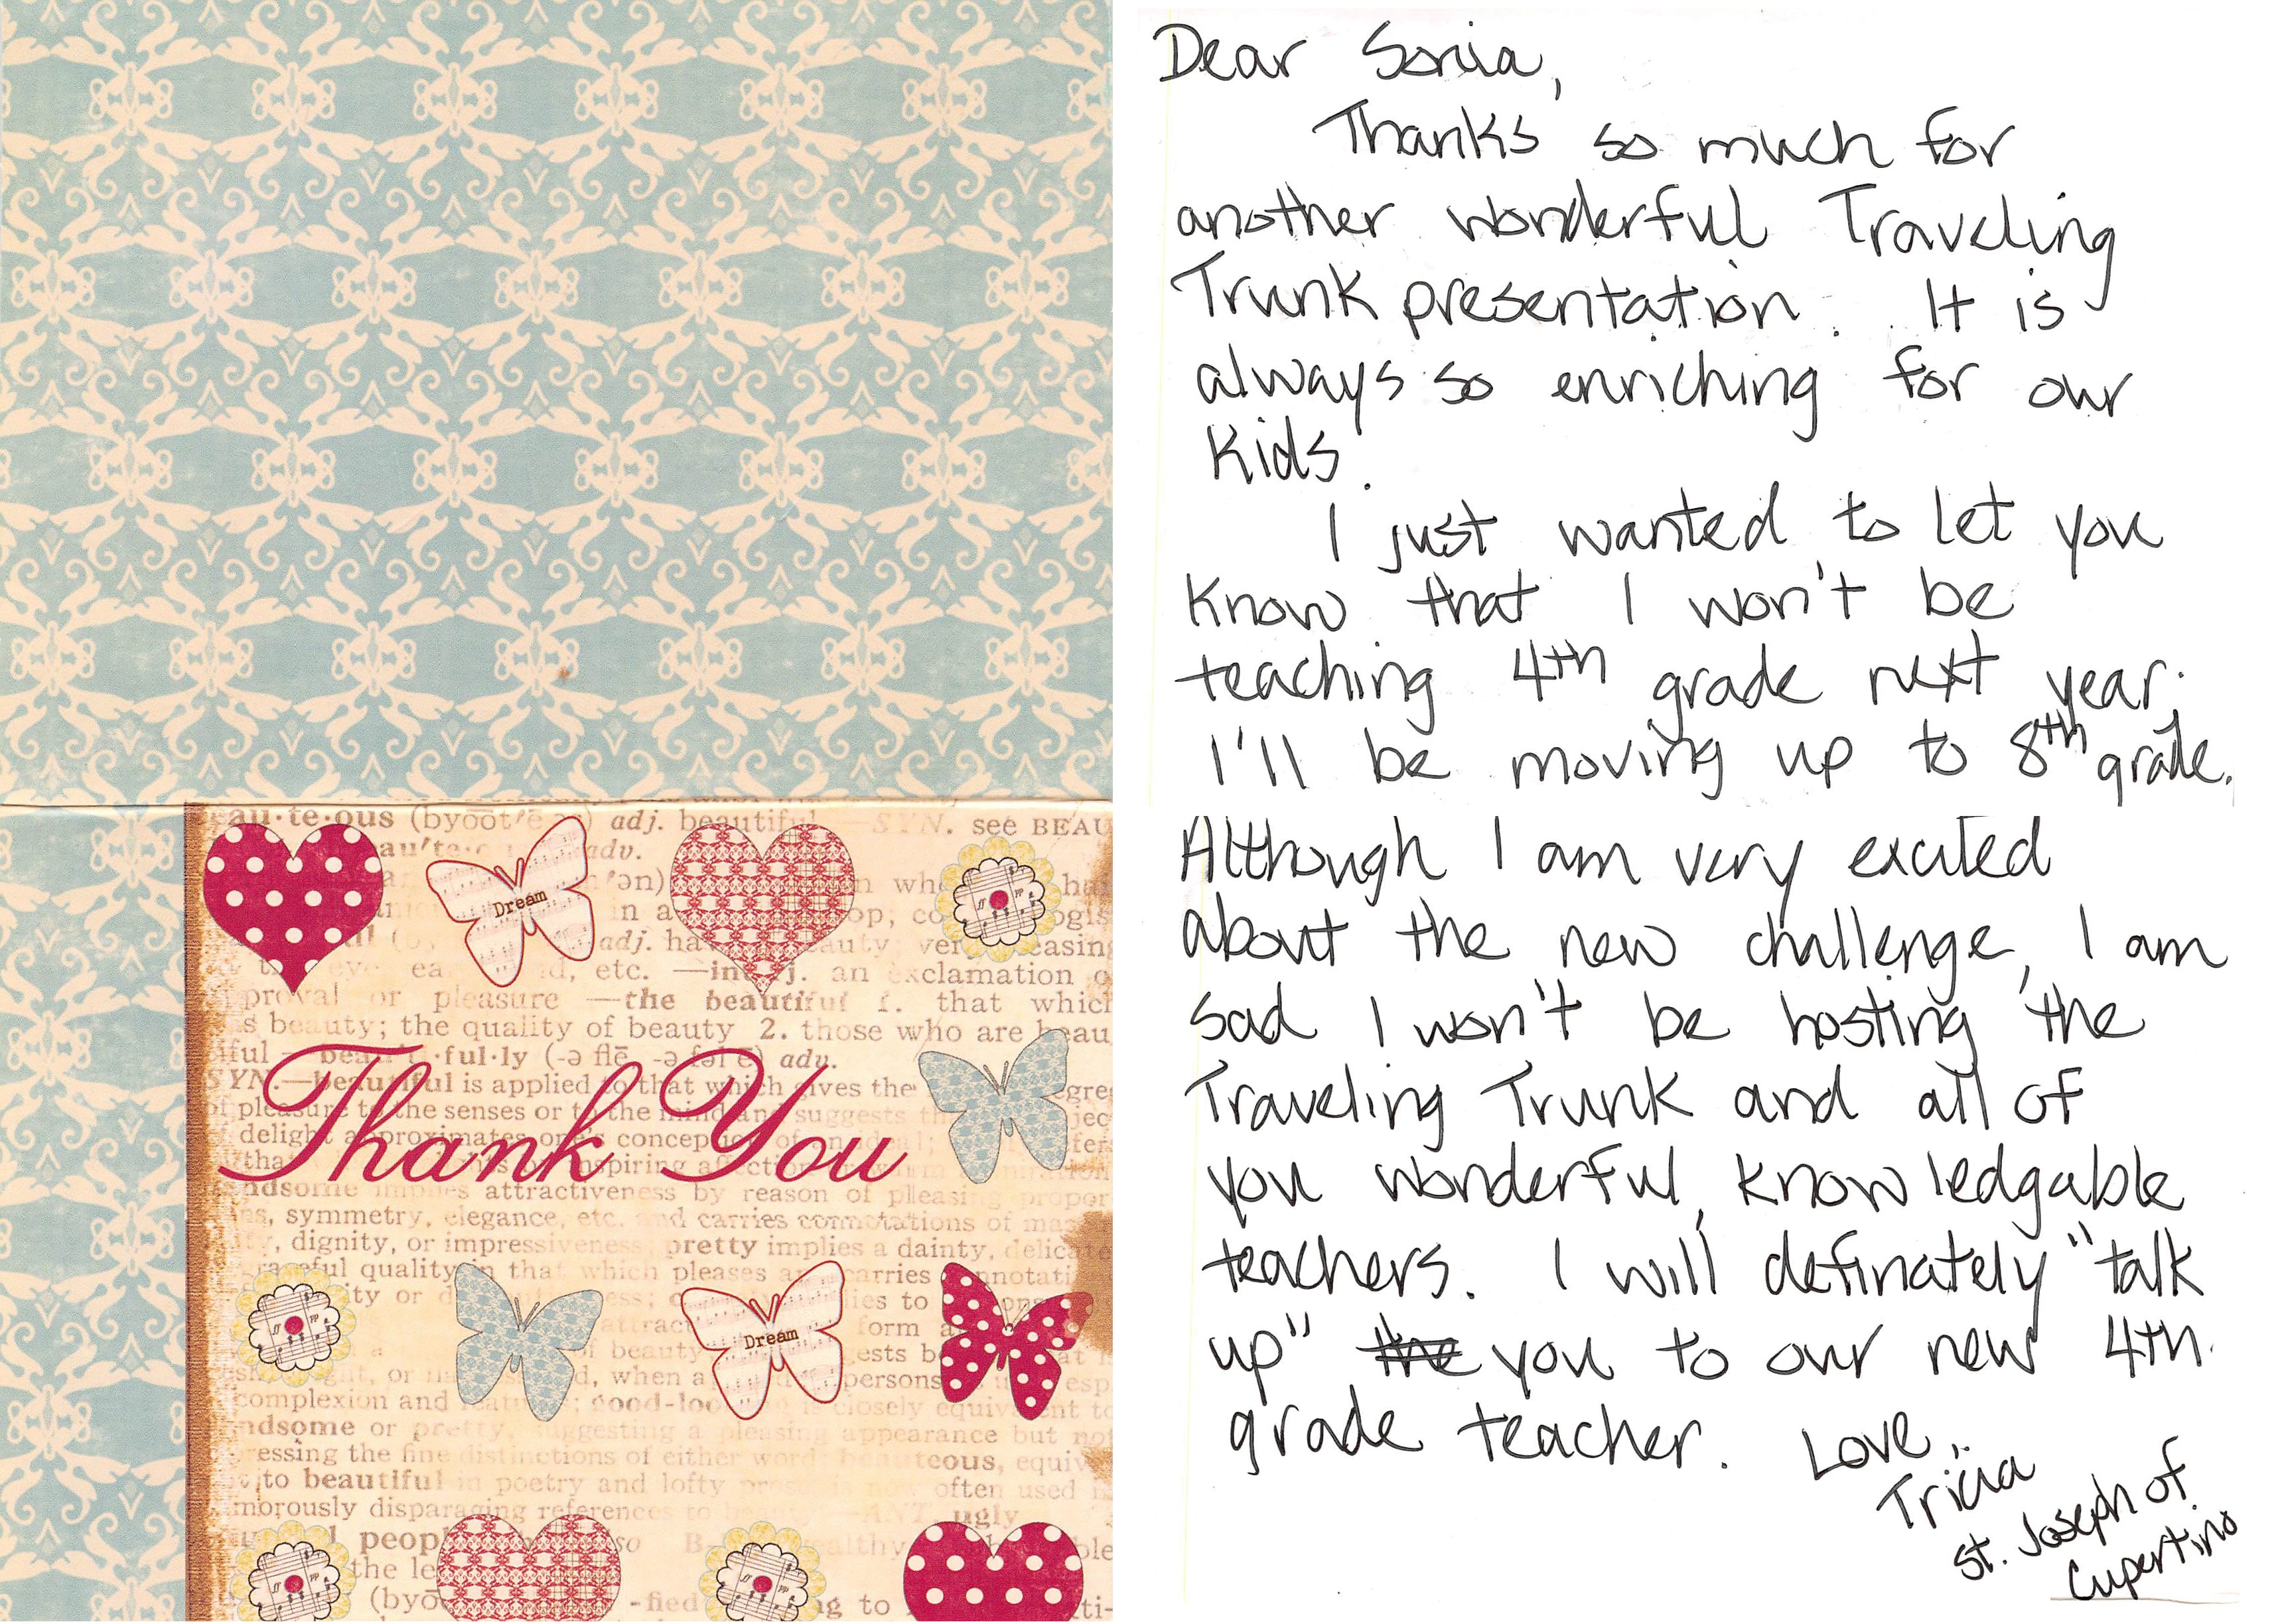 au·te·ous (byo͞ot′ē ) adj. beautiful —SYN. see BEAU
adv.
Dream
adj.
etc. —
an exclamation o
proval or pleasure —the beautiful 1. that which
s beauty; the quality of beauty 2. those who are beau
iful — ·ful·ly (-ə flē, -ə fəl ē) adv.
SYN.—beautiful is applied to that which gives the
of pleasure to the senses or to the mind and suggests
delight approximates one's conception of an
Thank You
ndsome implies attractiveness by reason of pleasing propor
ns, symmetry, elegance, etc. and carries connotations of
, dignity, or impressiveness pretty implies a dainty, delicate
quality in that which pleases carries
form
Dream
persons
complexion and ; good-loo is closely equivalent to
ndsome or pretty, suggesting a pleasing appearance but no
essing the fine distinctions of either word; beauteous, equiv
to beautiful in poetry and lofty often used
morously disparaging references to —ANT. ugly
peopl
the
Dear Sonia,
Thanks so much for
another wonderful Traveling
Trunk presentation. It is
always so enriching for our
Kids.
I just wanted to let you
know that I won't be
teaching 4th grade next year.
I'll be moving up to 8th grade.
Although I am very excited
about the new challenge, I am
sad I won't be hosting the
Traveling Trunk and all of
you wonderful, knowledgable
teachers. I will definately "talk
up" the you to our new 4th
grade teacher. Love,
Tricia
St. Joseph of
Cupertino